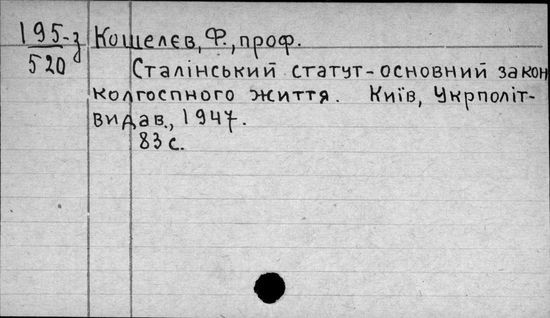 195-з Кошелєв, Ф., проф.
520
Сталінський статут-основний закон
колгоспного життя. Київ, Укрполіт-
видав., 1947.
83 с.